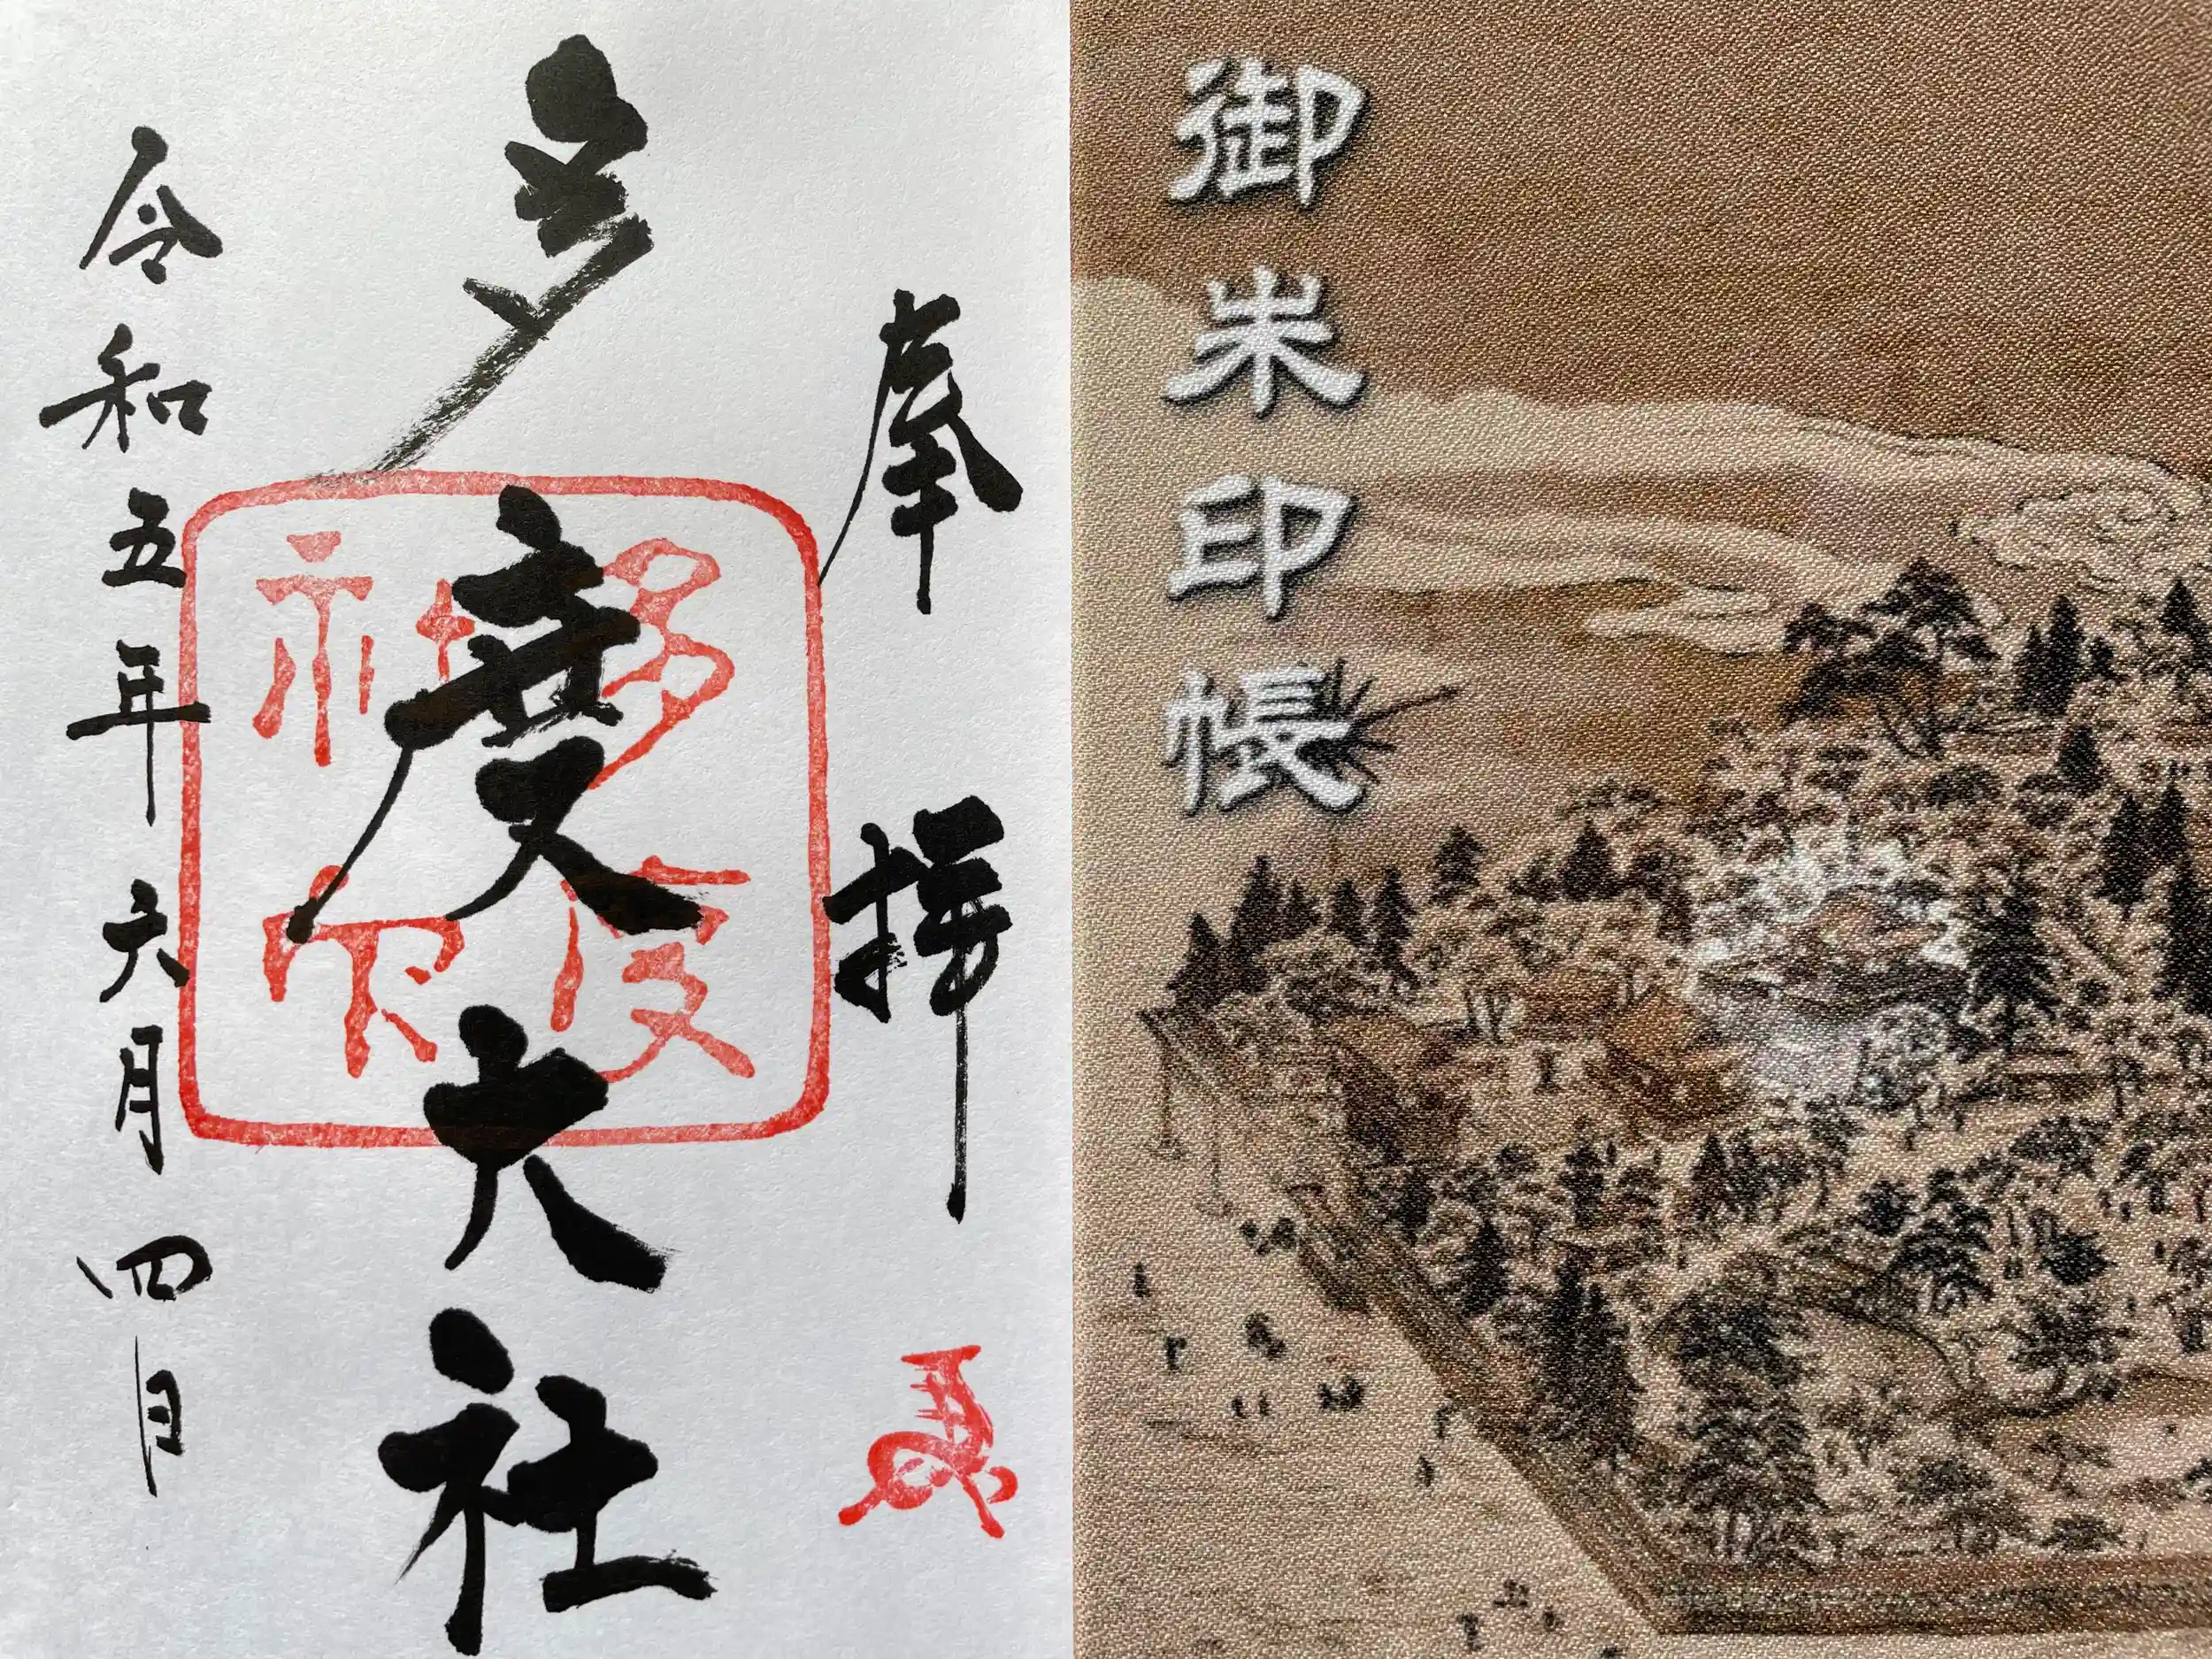 御朱印帳
奉拝
多度大社
多度
令和五年六月四日